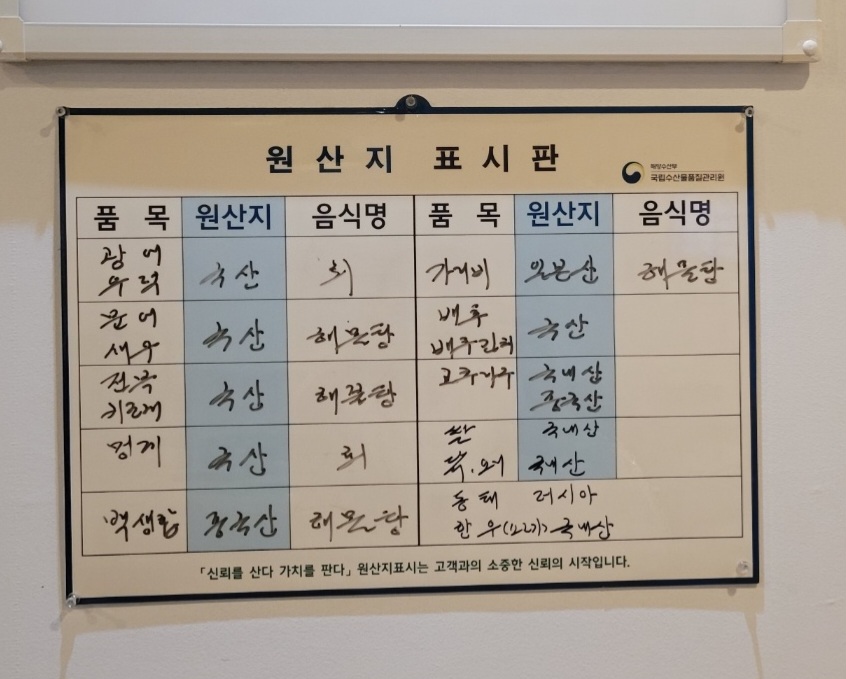 원산지 표시판
해양수산부
국립수산물품질관리원
품목 원산지 음식명 품목 원산지 음식명
광어
우럭
국산
회
가리비
일본산
해물탕
문어
새우
국산
해물탕
배추
국산
전복
키조개
국산
해물탕
고추가루
국내산
중국산
멍게
국산
회
쌀
국내산
국내산
중국산
해물탕
동태 러시아
한우 국내산
「신뢰를 산다 가치를 판다」 원산지표시는 고객과의 소중한 신뢰의 시작입니다.